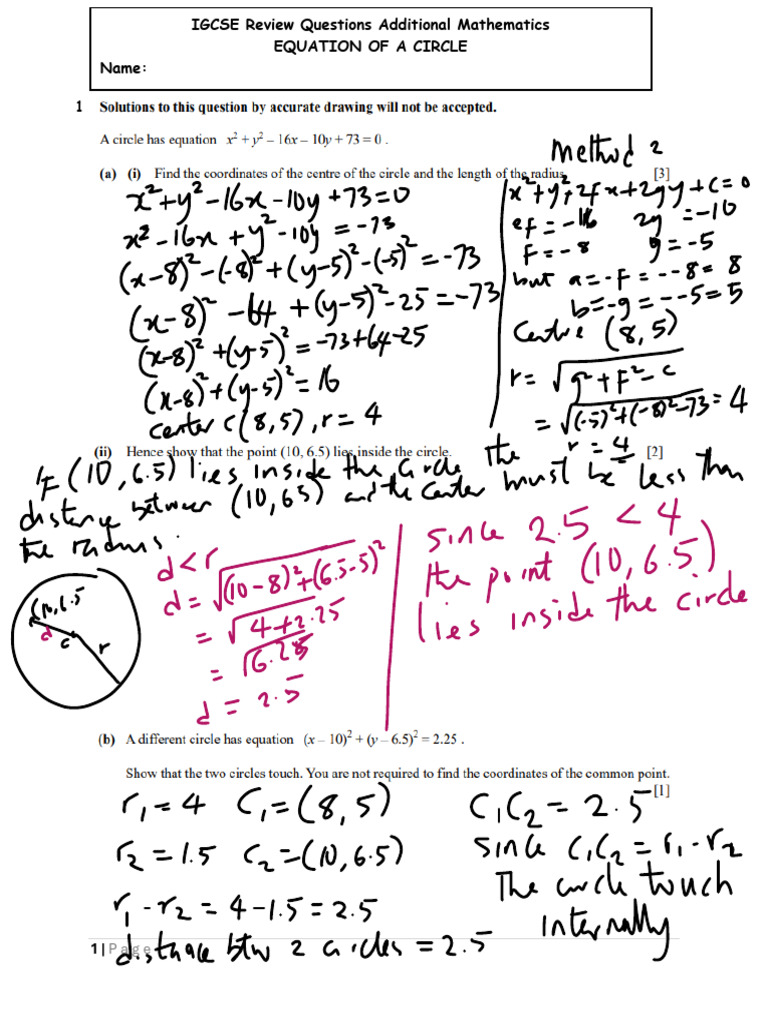 IGCSE Review Questions Additional Mathematics
EQUATION OF A CIRCLE
Name:
1 Solutions to this question by accurate drawing will not be accepted.
A circle has equation x² + y² – 16x – 10y + 73 = 0 .
(a) (i) Find the coordinates of the centre of the circle and the length of the radius. [3]
x²+y²-16x-10y+73=0
x²-16x+y²-10y=-73
(x-8)²-(-8)²+(y-5)²-(-5)²=-73
(x-8)²-64+(y-5)²-25=-73
(x-8)²+(y-5)²=-73+64-25
(x-8)²+(y-5)²=16
center c(8,5), r=4
Method 2
x²+y²+2fx+2gy+c=0
2f=-16 2g=-10
f=-8 g=-5
but a=-f=--8=8
b=-g=--5=5
Centre (8,5)
r=√g²+f²-c
=√(-5)²+(-8)²-73=4
r=4
(ii) Hence show that the point (10, 6.5) lies inside the circle. [2]
If (10,6.5) lies inside the circle the
distance between (10,65) and the center must be less than
the radius.
(10,6.5
d
c
r
d<r
d=√(10-8)²+(6.5-5)²
=√4+2.25
=√6.25
d=2.5
since 2.5 < 4
the point (10,6.5)
lies inside the circle
(b) A different circle has equation (x – 10)² + (y – 6.5)² = 2.25 .
Show that the two circles touch. You are not required to find the coordinates of the common point.
[1]
r₁=4 C₁=(8,5)
r₂=1.5 C₂=(10,6.5)
r₁-r₂=4-1.5=2.5
distnace btw 2 circles=2.5
C₁C₂=2.5
since C₁C₂=r₁-r₂
The circle touch
internally
1 | Page